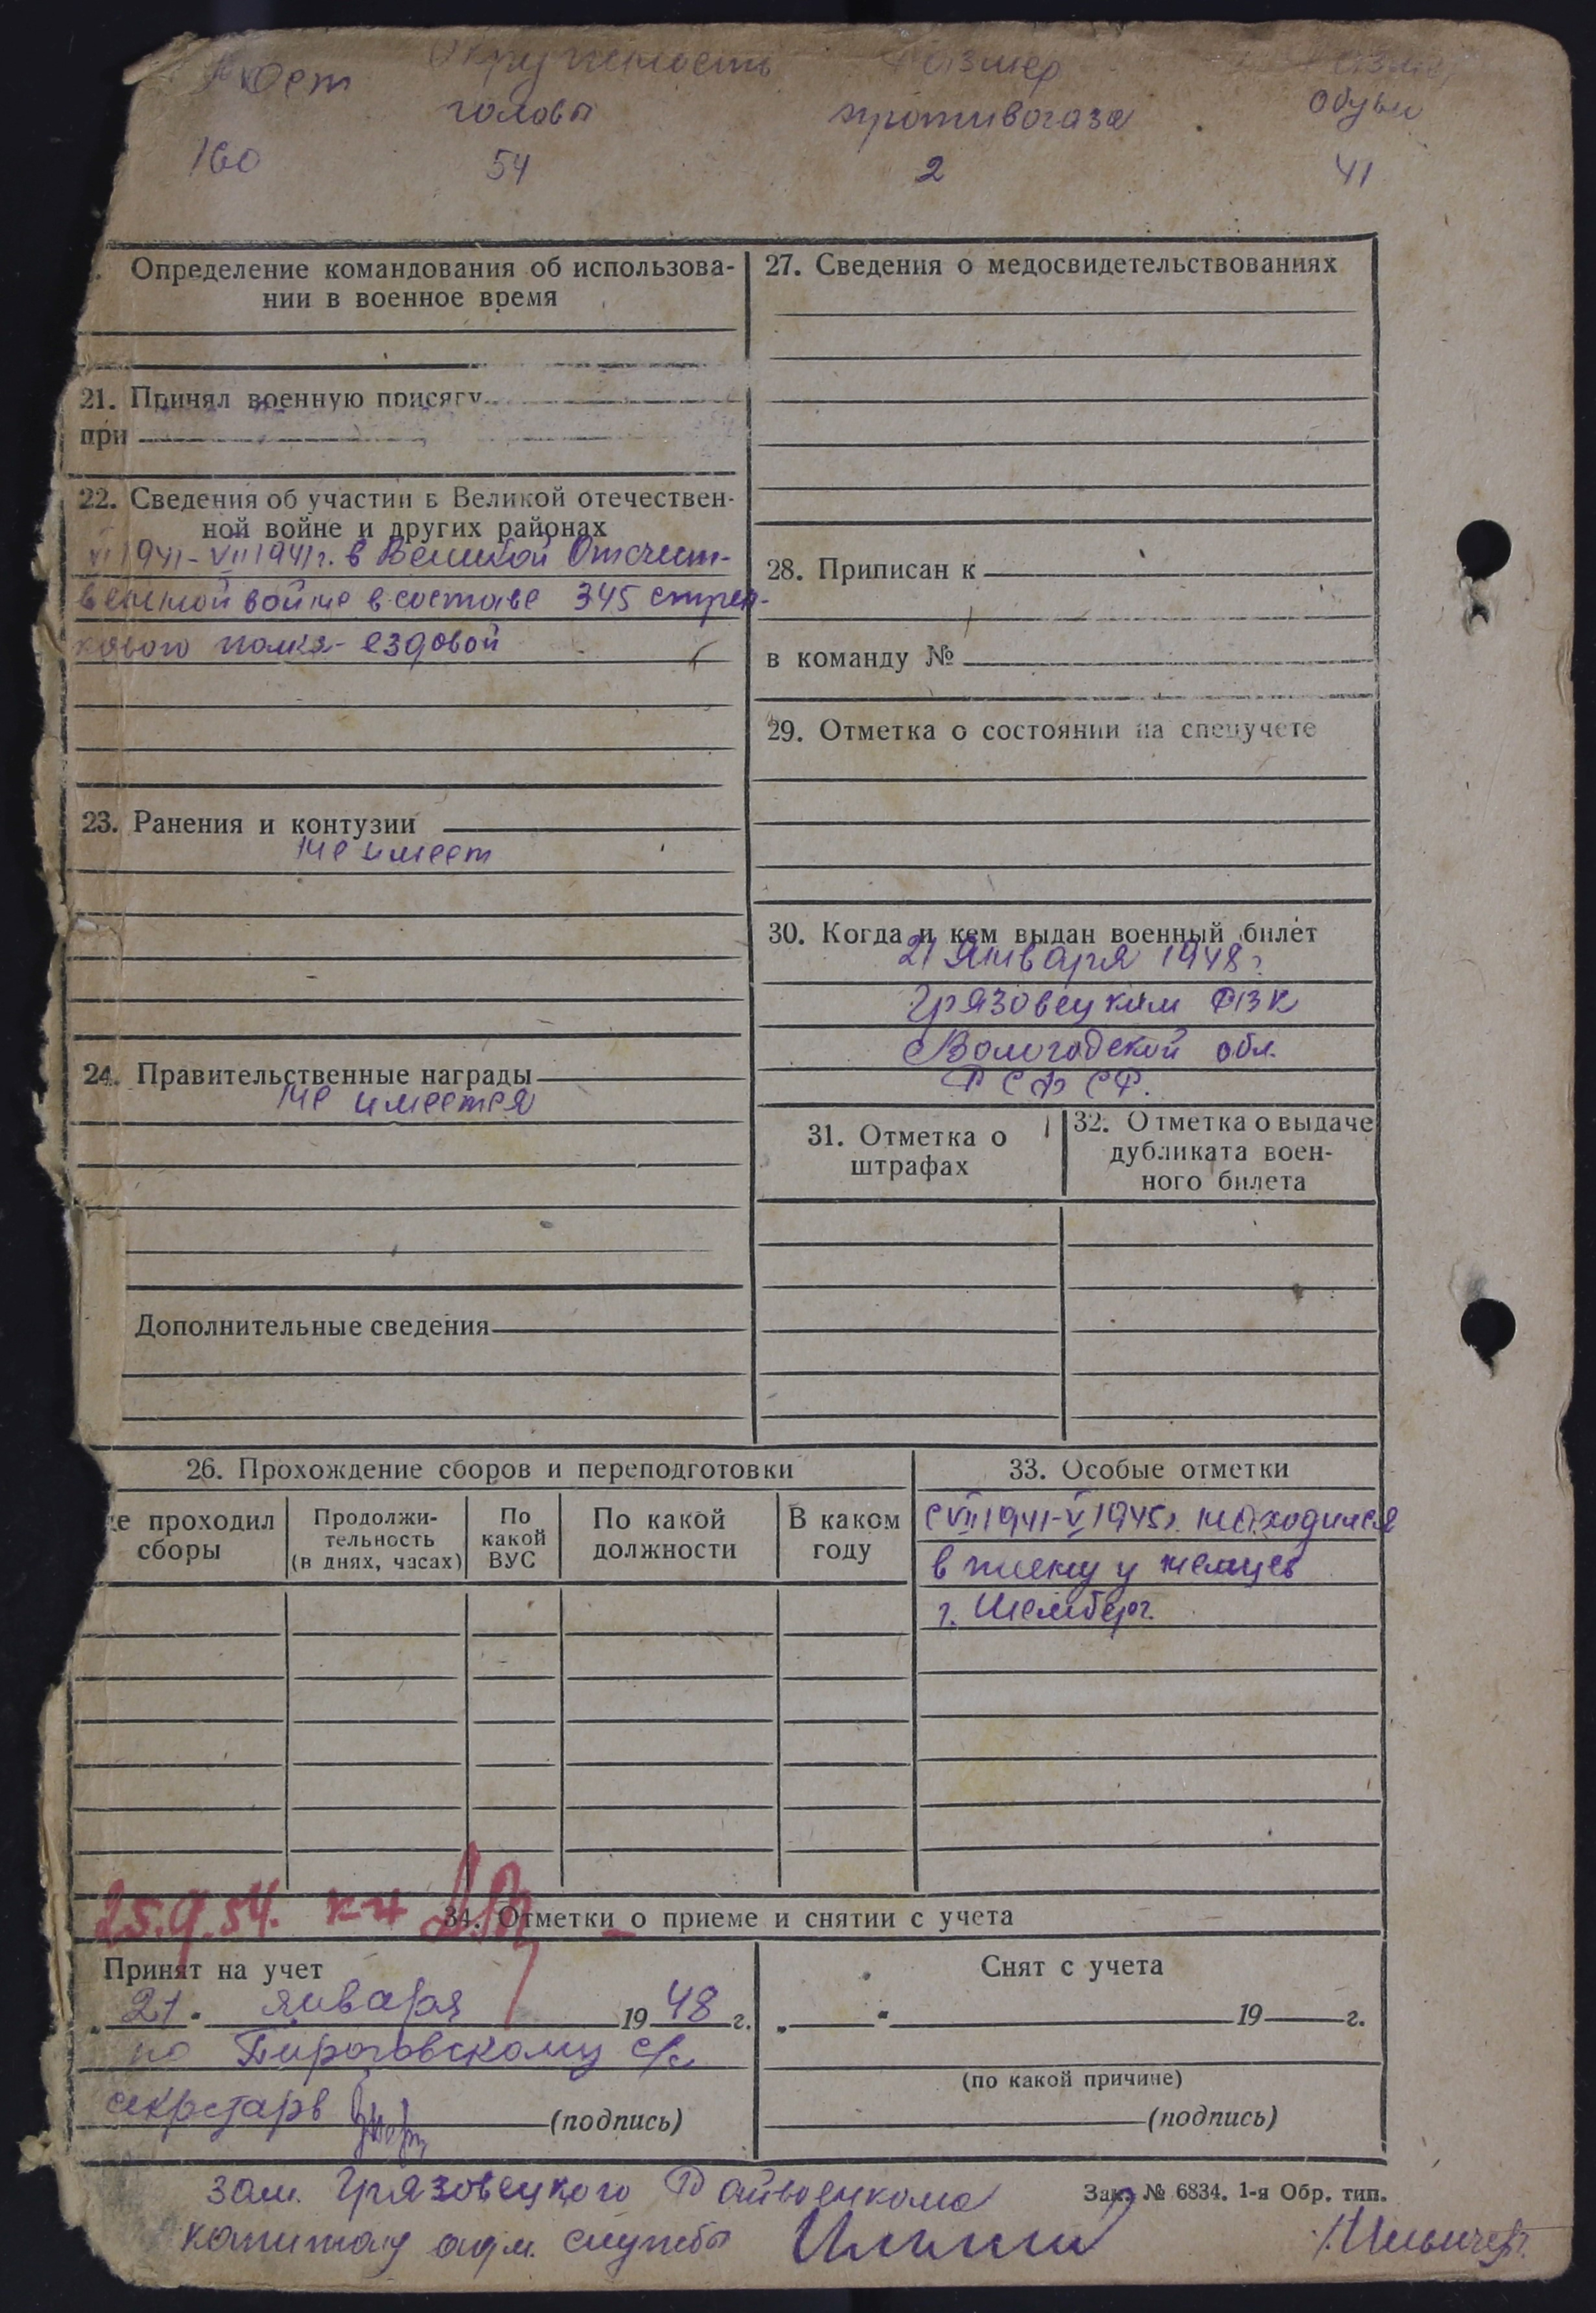 Рост Окружность Размер Размер
головы противогаза обуви
160 54 2 41
Определение командования об использова-
нии в военное время
21. Принял военную присягу
при
22. Сведения об участии в Великой отечествен-
ной войне и других районах
VI 1941 - VII 1941 г. в Великой Отечест-
венной войне в составе 345 стрел-
кового полка - ездовой
23. Ранения и контузии
не имеет
24. Правительственные награды
не имеется
Дополнительные сведения
27. Сведения о медосвидетельствованиях
28. Приписан к
в команду №
29. Отметка о состоянии на спецучете
30. Когда и кем выдан военный билет
21 января 1948 г
Грязовецким РВК
Вологодской обл.
РСФСР.
31. Отметка о
штрафах
32. Отметка о выдаче
дубликата воен-
ного билета
26. Прохождение сборов и переподготовки
де проходил
сборы
Продолжи-
тельность
(в днях, часах)
По
какой
ВУС
По какой
должности
В каком
году
33. Особые отметки
С VII 1941 - V 1945 г. находился
в плену у немцев
г.
25.9.54.
34. Отметки о приеме и снятии с учета
Принят на учет
„21" января 1948 г.
по Пироговскому с/с
секретарь (подпись)
Снят с учета
„ " 19 г.
(по какой причине)
(подпись)
зам. Грязовецкого Райвоенкома
Зак. № 6834. 1-я Обр. тип.
капитан адм. службы